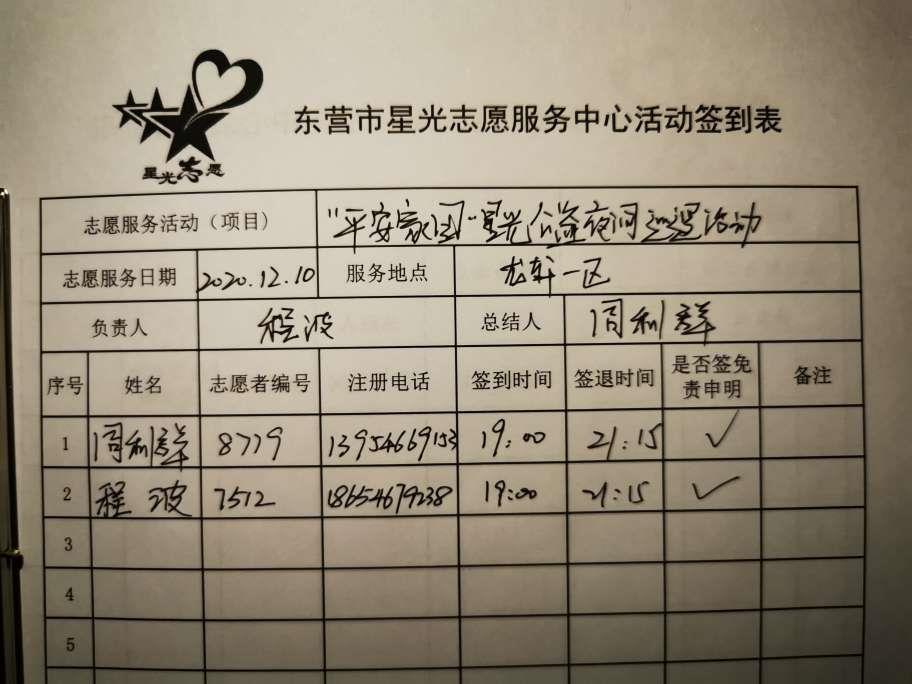 星光志愿
东营市星光志愿服务中心活动签到表
志愿服务活动（项目） "平安家园"星光公益夜间巡逻活动
志愿服务日期 2020.12.10 服务地点 龙轩一区
负责人 程波 总结人 周利群
序号 姓名 志愿者编号 注册电话 签到时间 签退时间 是否签免责申明 备注
1 周利群 8779 13954669153 19:00 21:15 ✓
2 程波 7512 18654679238 19:00 21:15 ✓
3
4
5